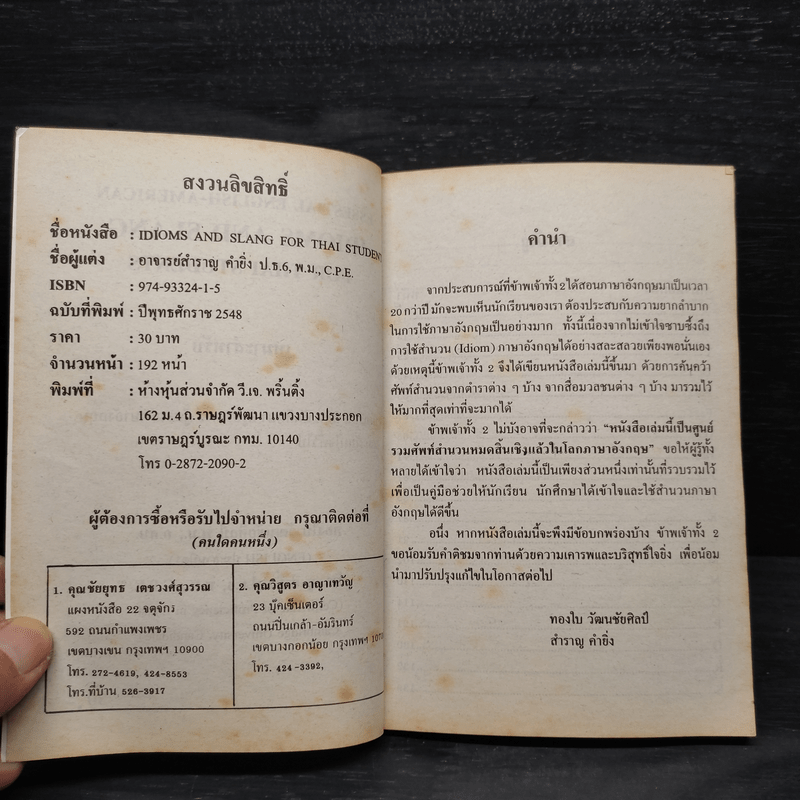 สงวนลิขสิทธิ์
ชื่อหนังสือ : IDIOMS AND SLANG FOR THAI STUDENT
ชื่อผู้แต่ง : อาจารย์สำราญ คำยิ่ง ป.ธ.6, พ.ม., C.P.E.
ISBN : 974-93324-1-5
ฉบับที่พิมพ์ : ปีพุทธศักราช 2548
ราคา : 30 บาท
จำนวนหน้า : 192 หน้า
พิมพ์ที่ : ห้างหุ้นส่วนจำกัด วี.เจ. พริ้นติ้ง
162 ม.4 ถ.ราษฎร์พัฒนา แขวงบางประกอก
เขตราษฎร์บูรณะ กทม. 10140
โทร 0-2872-2090-2
ผู้ต้องการซื้อหรือรับไปจำหน่าย กรุณาติดต่อที่
(คนใดคนหนึ่ง)
1. คุณชัยยุทธ เตชวงศ์สุวรรณ
แผงหนังสือ 22 จตุจักร
592 ถนนกำแพงเพชร
เขตบางเขน กรุงเทพฯ 10900
โทร. 272-4619, 424-8553
โทร.ที่บ้าน 526-3917
2. คุณวิสูตร อาญาเทวัญ
23 บุ๊คเซ็นเตอร์
ถนนปิ่นเกล้า-อัมรินทร์
เขตบางกอกน้อย กรุงเทพฯ
โทร. 424-3392,
คำนำ
จากประสบการณ์ที่ข้าพเจ้าทั้ง 2 ได้สอนภาษาอังกฤษมาเป็นเวลา
20 กว่าปี มักจะพบเห็นนักเรียนของเรา ต้องประสบกับความยากลำบาก
ในการใช้ภาษาอังกฤษเป็นอย่างมาก ทั้งนี้เนื่องจากไม่เข้าใจซาบซึ้งถึง
การใช้สำนวน (Idiom) ภาษาอังกฤษได้อย่างสละสลวยเพียงพอนั่นเอง
ด้วยเหตุนี้ข้าพเจ้าทั้ง 2 จึงได้เขียนหนังสือเล่มนี้ขึ้นมา ด้วยการค้นคว้า
ศัพท์สำนวนจากตำราต่าง ๆ บ้าง จากสื่อมวลชนต่าง ๆ บ้าง มารวมไว้
ให้มากที่สุดเท่าที่จะมากได้
ข้าพเจ้าทั้ง 2 ไม่บังอาจที่จะกล่าวว่า “หนังสือเล่มนี้เป็นศูนย์
รวมศัพท์สำนวนหมดสิ้นเชิงแล้วในโลกภาษาอังกฤษ” ขอให้ผู้รู้ทั้ง
หลายได้เข้าใจว่า หนังสือเล่มนี้เป็นเพียงส่วนหนึ่งเท่านั้นที่รวบรวมไว้
เพื่อเป็นคู่มือช่วยให้นักเรียน นักศึกษาได้เข้าใจและใช้สำนวนภาษา
อังกฤษได้ดีขึ้น
อนึ่ง หากหนังสือเล่มนี้จะพึงมีข้อบกพร่องบ้าง ข้าพเจ้าทั้ง 2
ขอน้อมรับคำติชมจากท่านด้วยความเคารพและบริสุทธิ์ใจยิ่ง เพื่อน้อม
นำมาปรับปรุงแก้ไขในโอกาสต่อไป
ทองใบ วัฒนชัยศิลป์
สำราญ คำยิ่ง